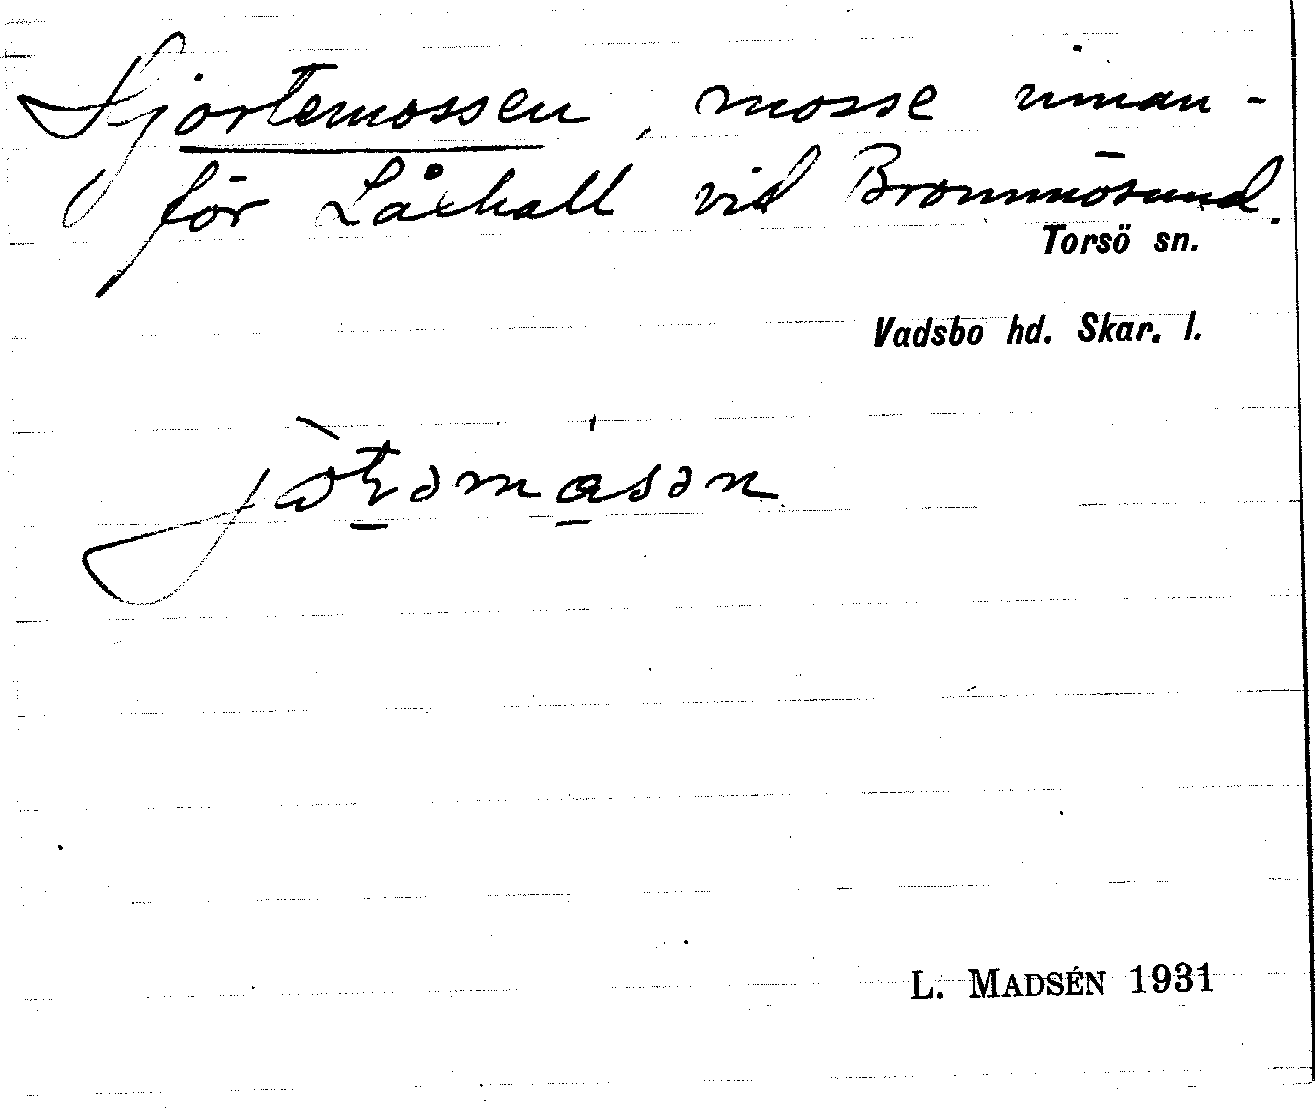 Hjortemossen, mosse innan-
för Låxhall vid Brommösund.
Torsö sn.
Vadsbo hd. Skar. l.
L. MADSÉN 1931